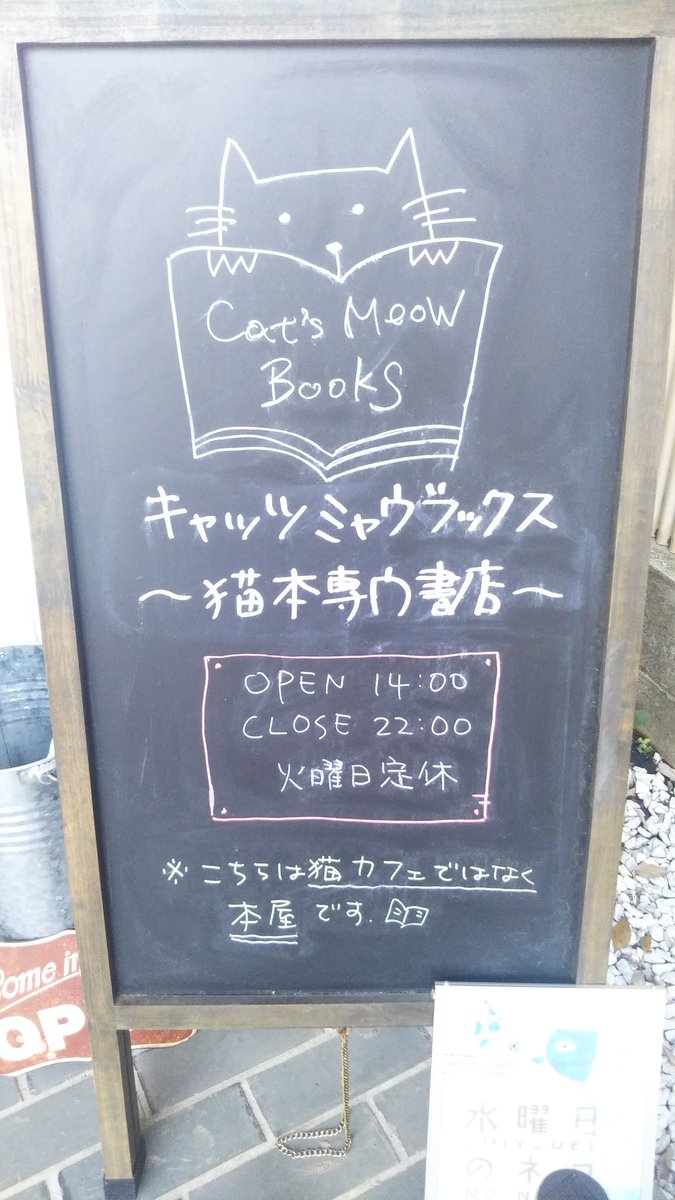 Cat's Meow
Books
キャッツミャウブックス
〜猫本専門書店〜
OPEN 14:00
CLOSE 22:00
火曜日定休
※こちらは猫カフェではなく
本屋です.
come in
OP
水曜日
のネコ